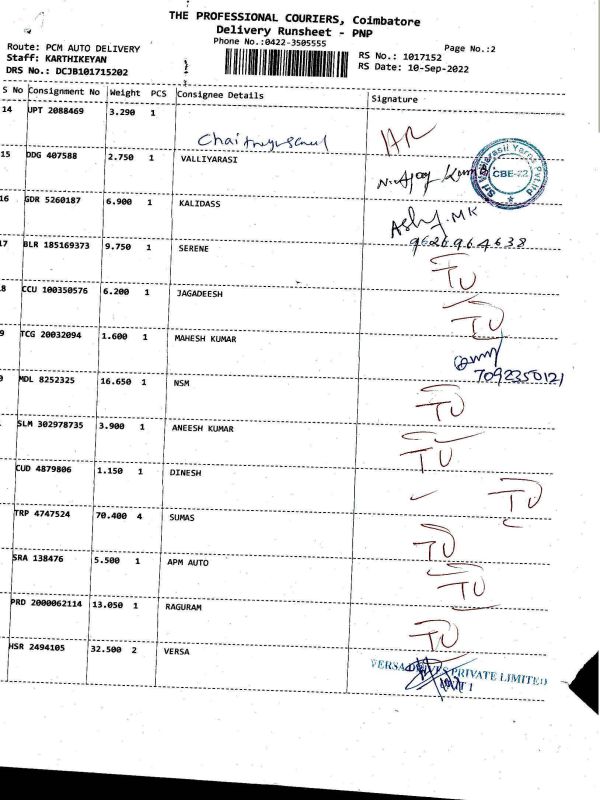 THE PROFESSIONAL COURIERS, Coimbatore
Delivery Runsheet - PNP
Phone No.:0422-3505555
Page No.:2
Route: PCM AUTO DELIVERY
Staff: KARTHIKEYAN
DRS No.: DCJB101715202
RS No.: 1017152
RS Date: 10-Sep-2022
S No Consignment No Weight PCS Consignee Details Signature
14 UPT 2088469 3.290 1
15 DDG 407588 2.750 1 VALLIYARASI
CBE-22
16 GDR 5260187 6.900 1 KALIDASS
MK
9626964638
17 BLR 185169373 9.750 1 SERENE TU
8 CCU 100350576 6.200 1 JAGADEESH TU
9 TCG 20032094 1.600 1 MAHESH KUMAR
7092350121
0 MDL 8252325 16.650 1 NSM TU
SLM 302978735 3.900 1 ANEESH KUMAR TU
CUD 4879806 1.150 1 DINESH TU
TRP 4747524 70.400 4 SUMAS TU
SRA 138476 5.500 1 APM AUTO TU
PRD 2000062114 13.050 1 RAGURAM TU
HSR 2494105 32.500 2 VERSA
VERSA DRIVES PRIVATE LIMITED
UNIT 1